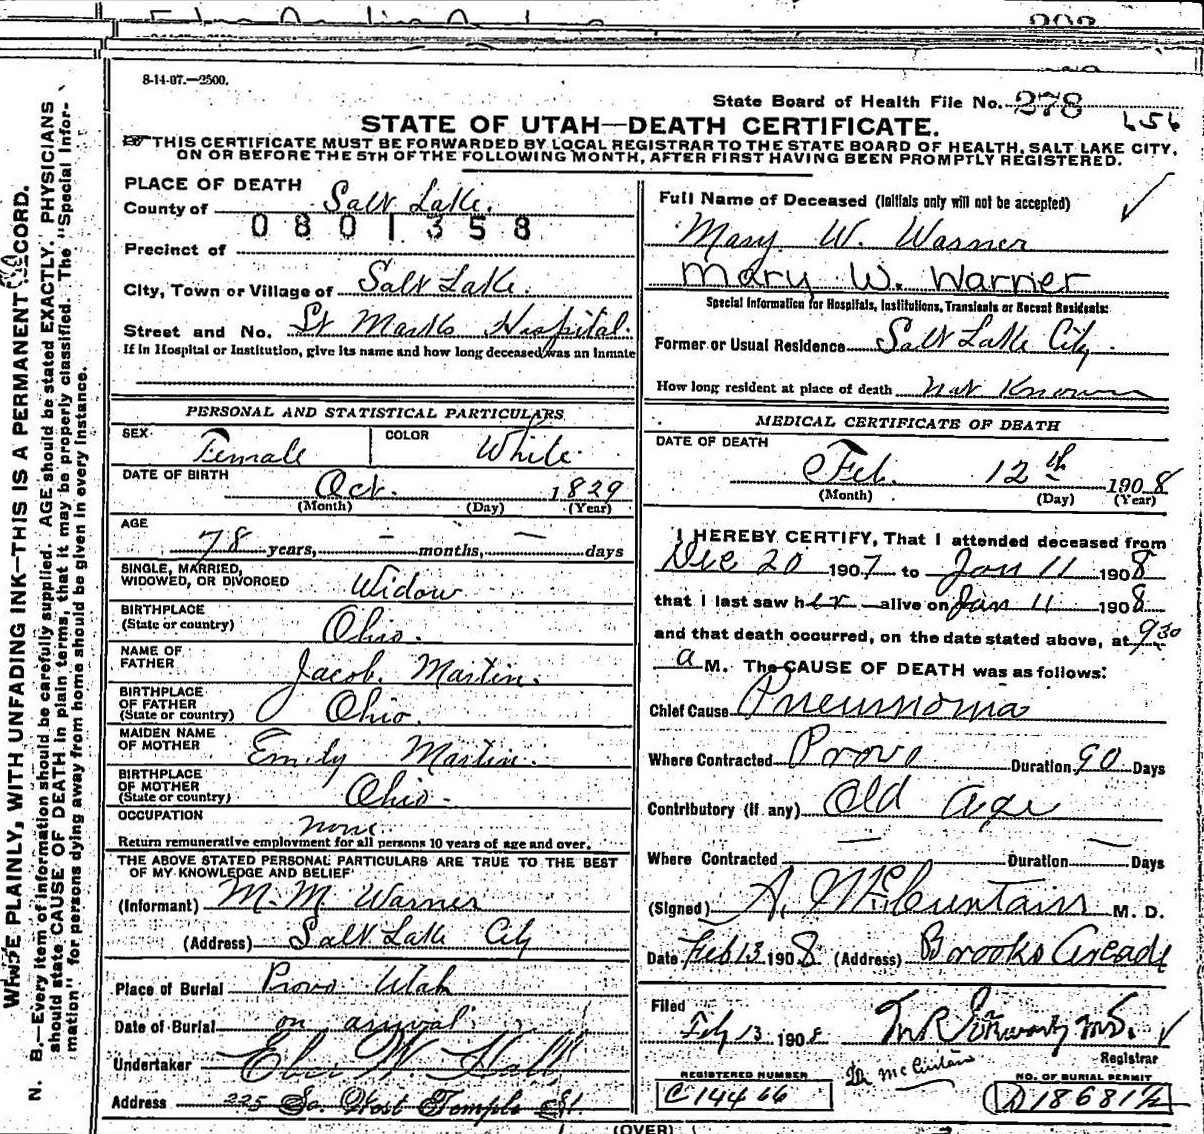 8-14-07.—2500.
State Board of Health File No. 278
656
STATE OF UTAH—DEATH CERTIFICATE.
THIS CERTIFICATE MUST BE FORWARDED BY LOCAL REGISTRAR TO THE STATE BOARD OF HEALTH, SALT LAKE CITY,
ON OR BEFORE THE 5TH OF THE FOLLOWING MONTH, AFTER FIRST HAVING BEEN PROMPTLY REGISTERED.
PLACE OF DEATH
County of Salt Lake.
0801358
Precinct of
City, Town or Village of Salt Lake.
Street and No. St Marks Hospital.
If in Hospital or Institution, give its name and how long deceased was an inmate
PERSONAL AND STATISTICAL PARTICULARS
SEX Female COLOR White
DATE OF BIRTH Oct. 1829
(Month) (Day) (Year)
AGE
78 years, — months, — days
SINGLE, MARRIED,
WIDOWED, OR DIVORCED Widow
BIRTHPLACE
(State or country) Ohio.
NAME OF
FATHER Jacob. Martin.
BIRTHPLACE
OF FATHER
(State or country) Ohio.
MAIDEN NAME
OF MOTHER Emily Martin.
BIRTHPLACE
OF MOTHER
(State or country) Ohio.
OCCUPATION none
Return remunerative employment for all persons 10 years of age and over.
THE ABOVE STATED PERSONAL PARTICULARS ARE TRUE TO THE BEST
OF MY KNOWLEDGE AND BELIEF
(Informant) M. M. Warner
(Address) Salt Lake City
Place of Burial Provo Utah
Date of Burial on arrival
Undertaker Eber W Hall
Address 225 So. West Temple St.
Full Name of Deceased (Initials only will not be accepted)
Mary W. Warner
Mary W. Warner
Special Information for Hospitals, Institutions, Transients or Recent Residents:
Former or Usual Residence Salt Lake City.
How long resident at place of death not Known
MEDICAL CERTIFICATE OF DEATH
DATE OF DEATH
Feb. 12th 1908
(Month) (Day) (Year)
I HEREBY CERTIFY, That I attended deceased from
Dec 20 1907 to Jan 11 1908
that I last saw her alive on Jan 11 1908
and that death occurred, on the date stated above, at 9 30
a M. The CAUSE OF DEATH was as follows:
Chief Cause Pneumonia
Where Contracted Provo Duration 90 Days
Contributory (if any) Old age
Where Contracted — Duration — Days
(Signed) A. M. D.
Date Feb 13 1908 (Address) Brooks Arcade
Filed
Feb 13 1908
Registrar
REGISTERED NUMBER
C 14466
NO. OF BURIAL PERMIT
D 18681½
(OVER)
N. B.—Every item of information should be carefully supplied. AGE should be stated EXACTLY. PHYSICIANS
should state CAUSE OF DEATH in plain terms, that it may be properly classified. The "Special Infor-
mation" for persons dying away from home should be given in every instance.
WRITE PLAINLY, WITH UNFADING INK—THIS IS A PERMANENT RECORD.